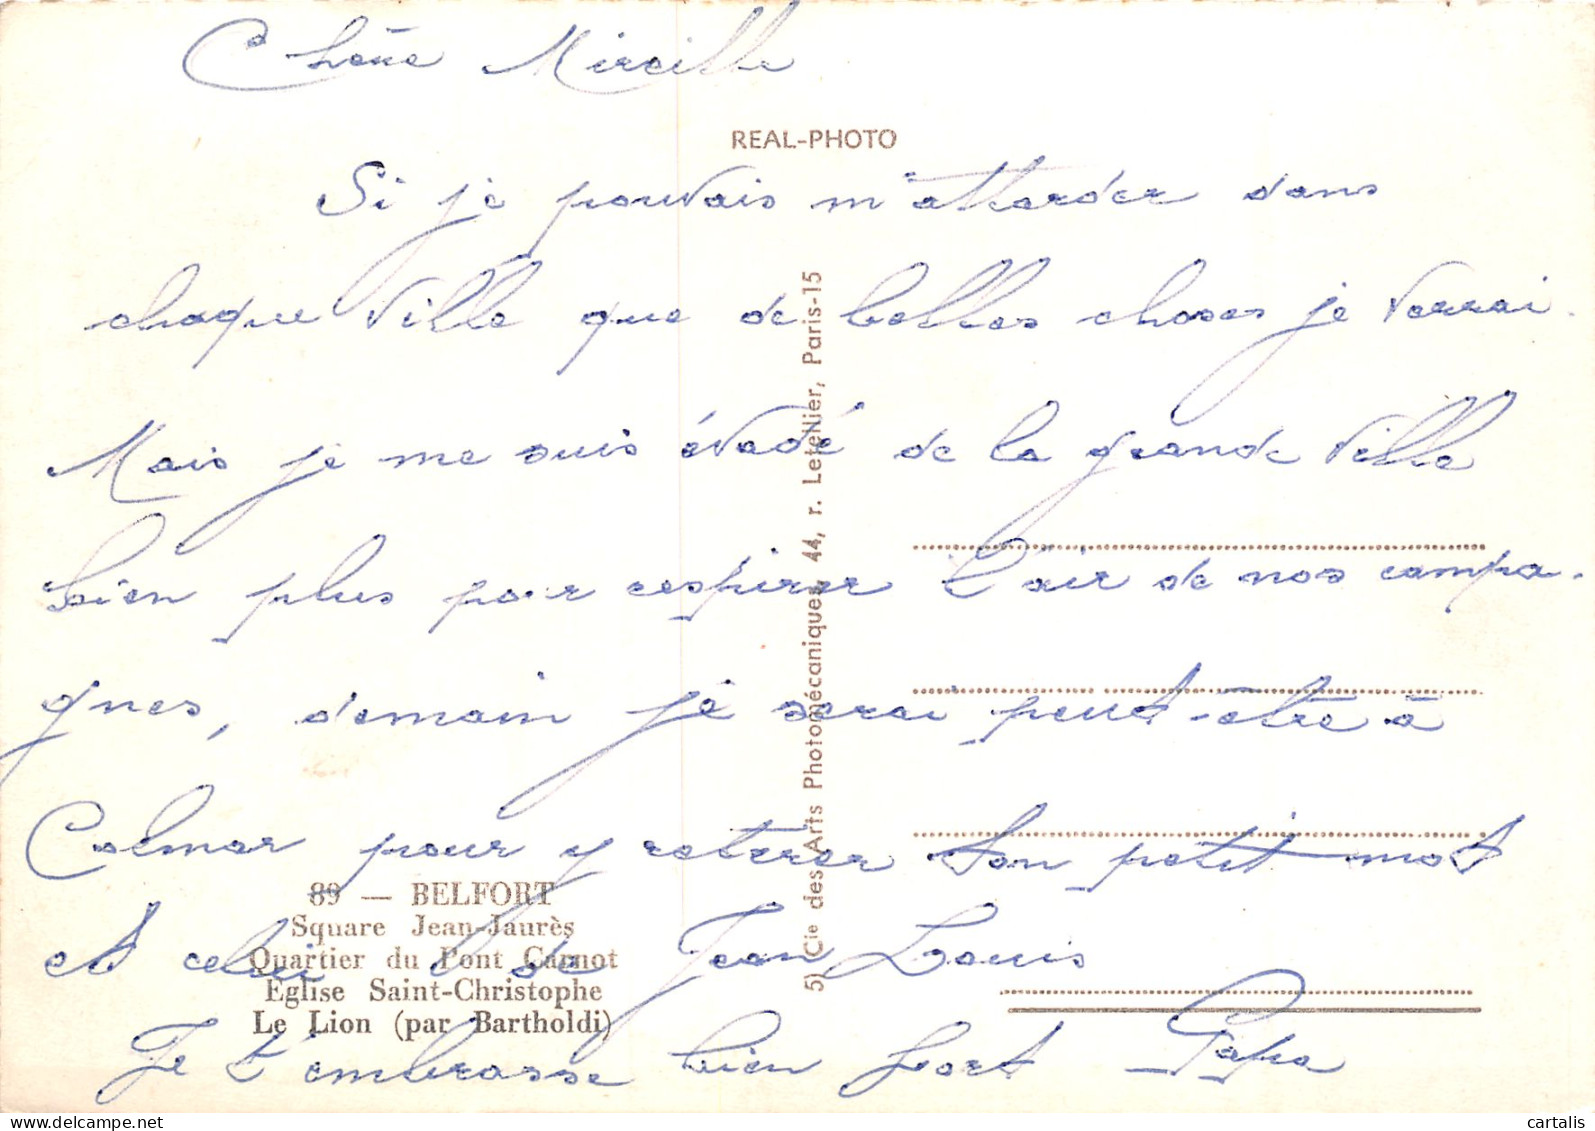 Chère Mireille
REAL-PHOTO
Si je pouvais m'attarder dans
chaque ville que de belles choses je verrai.
Mais je me suis évadé de la grande ville
bien plus pour respirer l'air de nos campa-
gnes, demain je serai peut-être à
Colmar pour y retirer ton petit mot
et celui de Jean Louis
Je t'embrasse bien fort Papa
89 — BELFORT
Square Jean-Jaurès
Quartier du Pont Carnot
Eglise Saint-Christophe
Le Lion (par Bartholdi)
5) Cie des Arts Photomécaniques, 44, r. Letellier, Paris-15
cartalis